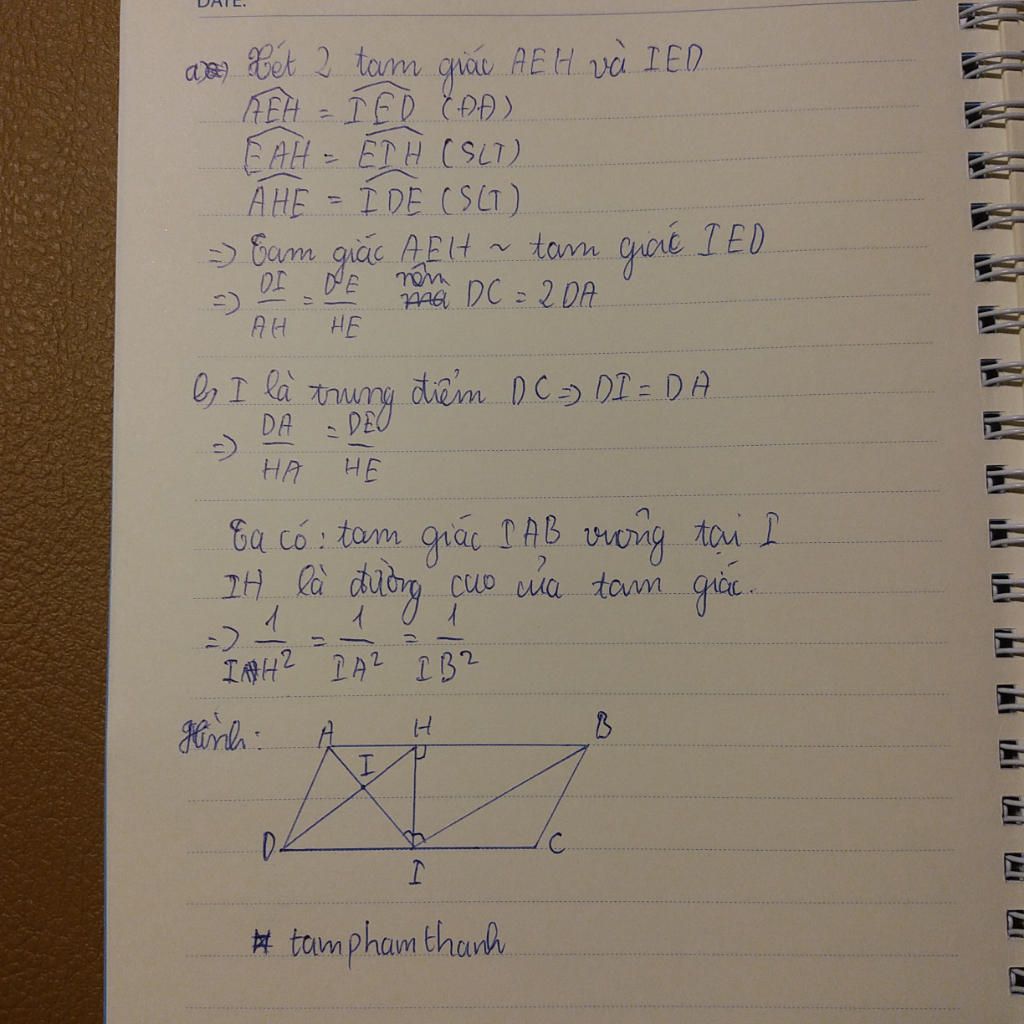 DATE:
a) Xét 2 tam giác AEH và IED
AEH = IED (ĐĐ)
EAH = EIH (SLT)
AHE = IDE (SLT)
=> Tam giác AEH ~ tam giác IED
=> DI/AH = DE/HE DC = 2DA
b, I là trung điểm DC => DI = DA
=> DA/HA = DE/HE
Ta có: tam giác IAB vuông tại I
IH là đường cao của tam giác.
=> 1/IH² = 1/IA² = 1/IB²
Hình:
A H B
I
D I C
* tamphamthanh